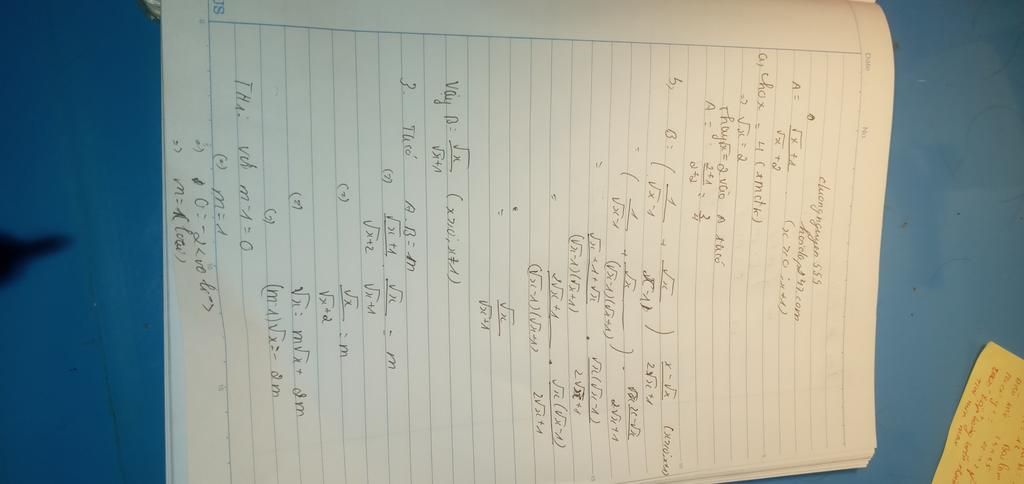 Date
No.
chuongnguyen555
hoidap247.com
A = \frac{\sqrt{x}+1}{\sqrt{x}+2} (x≥0, x≠1)
a, Cho x = 4 (tmđk)
=> √x = 2
Thay √x = 2 vào A ta có
A = \frac{2+1}{2+2} = \frac{3}{4}
b, B = ( \frac{1}{\sqrt{x}-1} + \frac{\sqrt{x}}{x-1} ) . \frac{x-\sqrt{x}}{2\sqrt{x}+1} (x≥0, x≠1)
= ( \frac{1}{\sqrt{x}-1} + \frac{\sqrt{x}}{(\sqrt{x}-1)(\sqrt{x}+1)} ) . \frac{x-\sqrt{x}}{2\sqrt{x}+1}
= \frac{\sqrt{x}+1+\sqrt{x}}{(\sqrt{x}-1)(\sqrt{x}+1)} . \frac{\sqrt{x}(\sqrt{x}-1)}{2\sqrt{x}+1}
= \frac{2\sqrt{x}+1}{(\sqrt{x}-1)(\sqrt{x}+1)} . \frac{\sqrt{x}(\sqrt{x}-1)}{2\sqrt{x}+1}
= \frac{\sqrt{x}}{\sqrt{x}+1}
Vậy B = \frac{\sqrt{x}}{\sqrt{x}+1} (x≥0, x≠1)
3. Ta có A.B = m
(=) \frac{\sqrt{x}+1}{\sqrt{x}+2} . \frac{\sqrt{x}}{\sqrt{x}+1} = m
(=) \frac{\sqrt{x}}{\sqrt{x}+2} = m
(=) √x = m√x + 2m
(=) (m-1)√x = -2m
TH1: với m-1 = 0
(=) m = 1
=) 0 = -2 <vô lí>
=) m = 1 (loại)